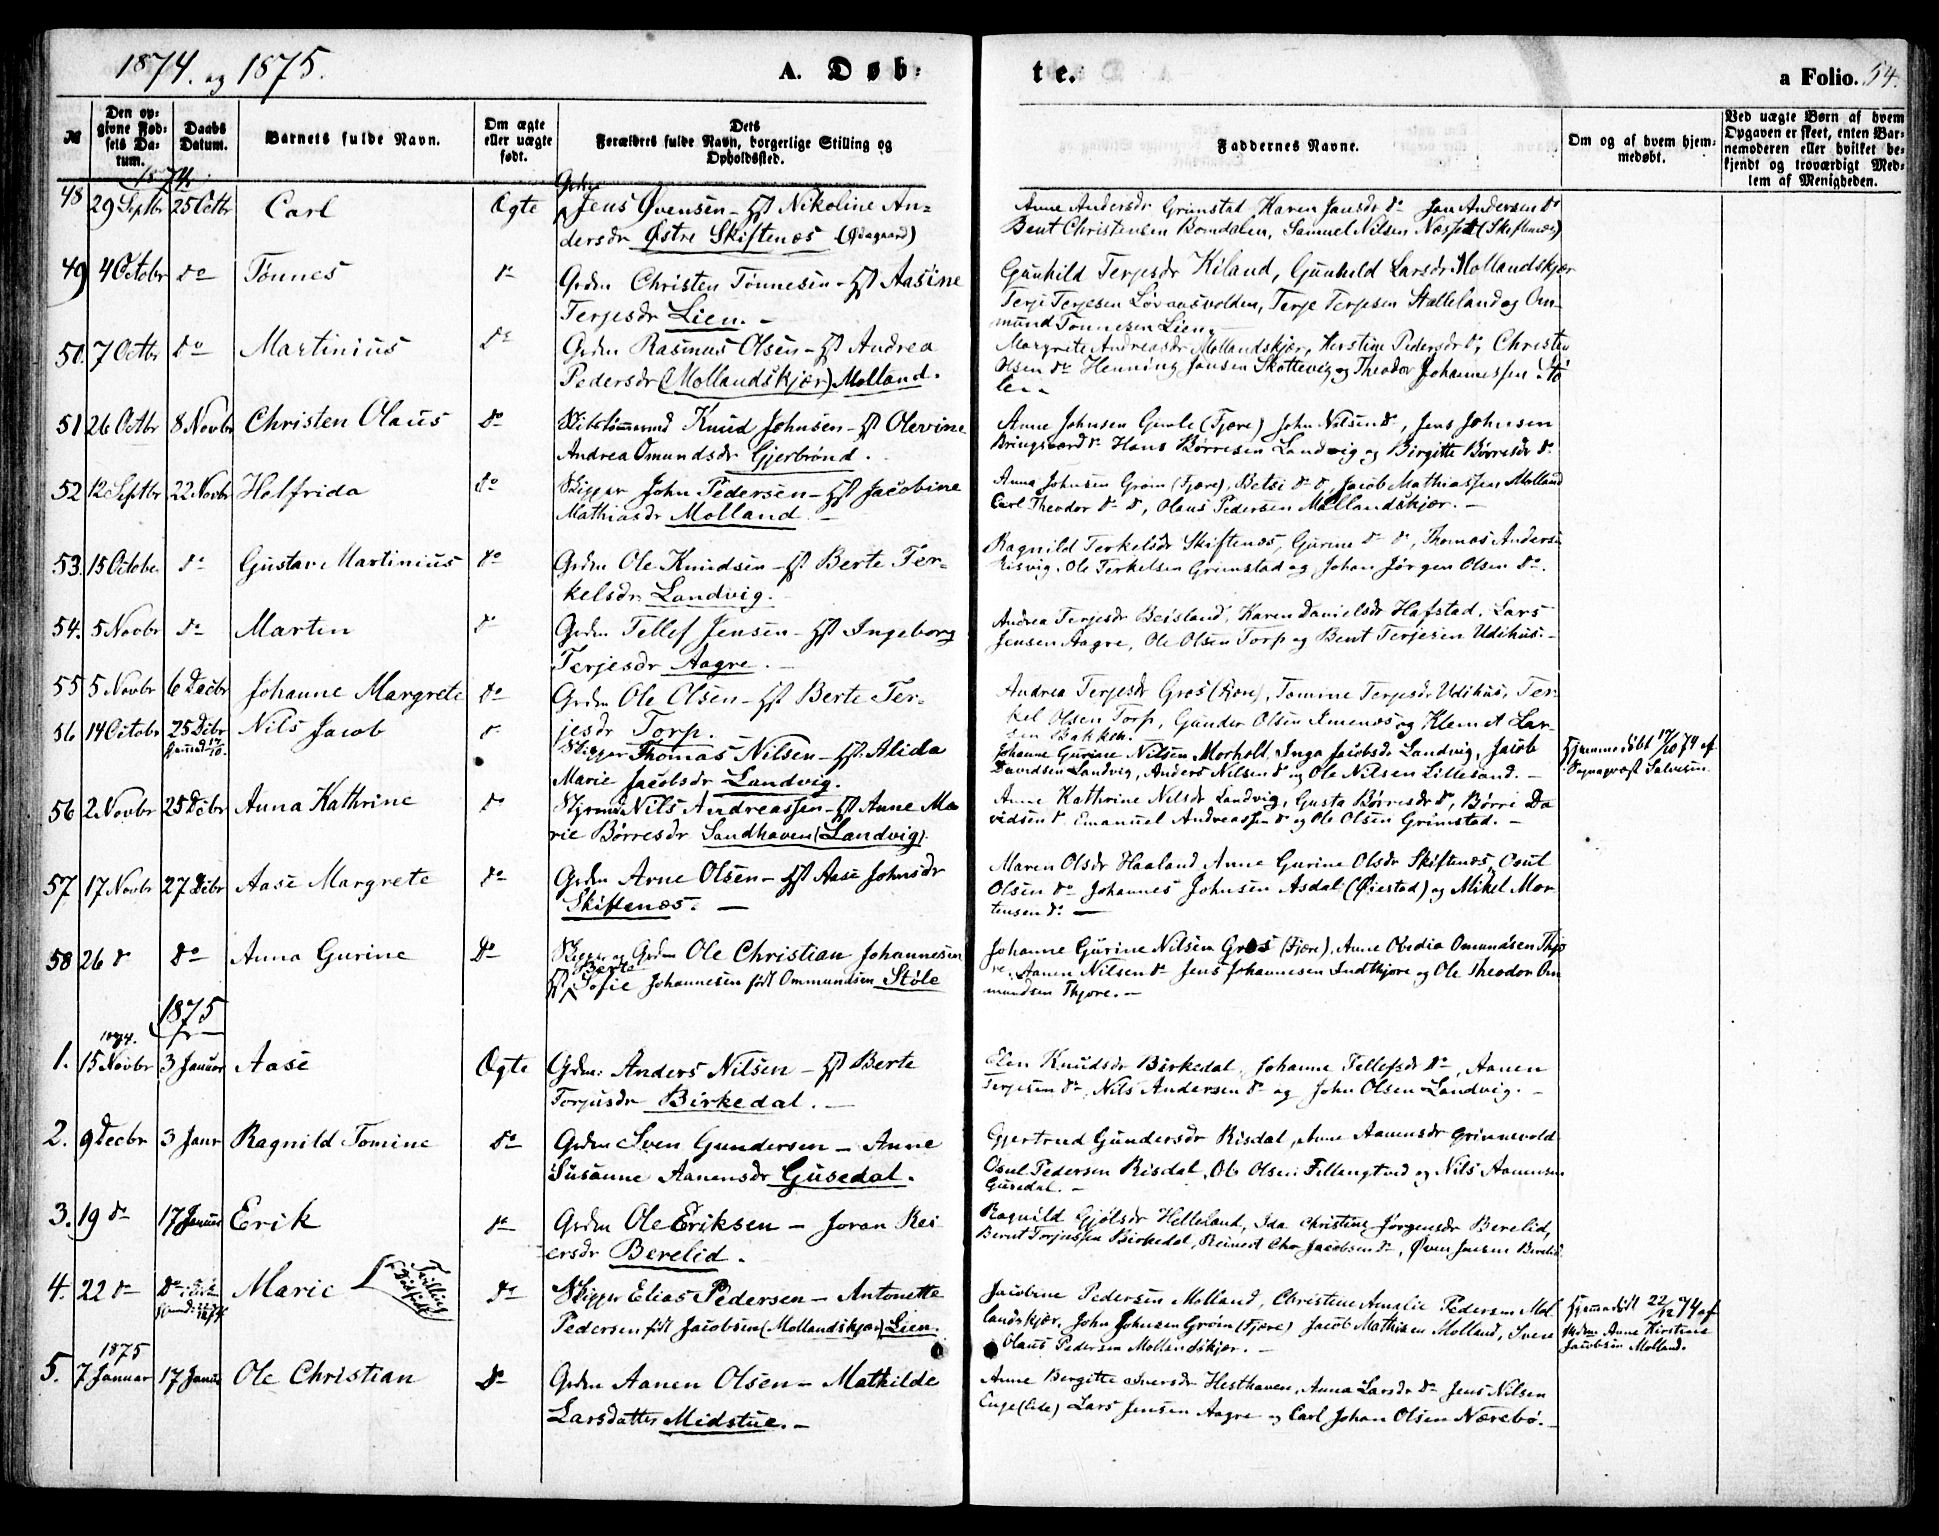 1874. og 1875.
A. Døb-
te.
a Folio. 54.
№
Den op-
givne Fød-
sels Da-
tum.
Daabs
Datum.
Barnets fulde Navn.
Om ægte
eller uægte
født.
Dets
Forældres fulde Navn, borgerlige Stilling og
Opholdssted.
Faddernes Navne.
Om og af hvem hjem-
medøbt.
Ved uægte Børn af hvem
Opgaven er skeet, enten Bar-
nemoderen eller hvilket be-
kjendt og troværdigt Med-
lem af Menigheden.
1874
48 29 Septbr 25 Octbr Carl Ægte Grdm Jens Øvensen - Hst Nikoline An-
dersdr Østre Skiftenæs (Ødegaard)
Anne Andersdr Grimstad Karen Jansdr do Jan Andersen do
Bent Christensen Bomdalen, Samuel Nilsen (Skiftenæs)
49 4 Octobr do Tønnes do Grdm Christen Tønnesen - Hst Aasine
Terjesdr Lien. -
Gunhild Terjesdr Kiland, Gunhild Larsdr Mollandskjær
Terje Terjesen Løvaasvolden, Terje Terjesen Stælleland og Om-
mund Tønnesen Lien.
50. 7 Octbr do Martinius do Grdm Rasmus Olsen - Hst Andrea
Pedersdr (Mollandskjær) Molland.
Margrete Andreasdr Mollandskjær, Kirstine Pedersdr do, Christen
Olsen do Henning Jensen Skottevig og Theodor Johannessen Stø-
le. -
51 26 Octbr 8 Novbr Christen Olaus do Skibstømmermd Knud Johnsen - Hst Olevine
Andrea Omundsdr Gjerbrønd.
Anne Johnsen (Fjære) John Nilsen do, Jens Johnsen
Bringsværd do Hans Børresen Landvig og Birgitte Børresdr do
52 12 Septbr 22 Novbr Helfrida do Skipper John Pedersen - Hst Jacobine
Mathiasdr Molland. -
Anna Johnsen Grøm (Fjære), Betsi do do, Jacob Mathiassen Molland
Carl Theodor do do, Olaus Pedersen Mollandskjær. -
53. 15 Octobr do Gustav Martinius do Grdm Ole Knudsen - Hst Berte Ter-
kelsdr Landvig.
Ragnild Terkelsdr Skiftenæs, Gurine do do, Thomas Andersen
Risvig, Ole Terkelsen Grimstad og Johan Jørgen Olsen do.
54. 5 Novbr do Martin do Grdm Tellef Jensen - Hst Ingeborg
Terjesdr Aagre. -
Andrea Terjesdr Beisland, Karen Danielsdr Hafstad, Lars
Jensen Aagre, Ole Olsen Torp og Bent Terjesen Udihus. -
55 5 Novbr 6 Decbr Johanne Margrete do Grdm Ole Olsen - Hst Berte Ter-
jesdr Torp.
Andrea Terjesdr Gros (Fjære), Tomine Terjesdr Udihus, Ter-
kel Olsen Torp, Gunder Olsen Imenæs og Klemet Lar-
sen Bakken.
56 14 Octobr 25 Decbr Nils Jacob do Skipper Thomas Nilsen - Hst Alida
Marie Jacobsdr Landvig.
Johanne Gurine Nilsen Morholt, Inga Jacobsdr Landvig, Jacob
Davidsen Landvig, Anders Nilsen do og Ole Nilsen Lillesand. -
Hjemmedøbt 17/10 74 af
Sognepræst Salvesen
56 2 Novbr 25 Decbr Anna Kathrine do Styrmd Nils Andreassen - Hst Anne Ma
rie Børresdr Sandhaven (Landvig).
Anne Kathrine Nilsdr Landvig, Gusta Børresdr do, Børre Da
vidsen do, Emanuel Andreassen do og Ole Olsen Grimstad. -
57 17 Novbr 27 Decbr Aase Margrete do Grdm Arne Olsen - Hst Aase Johnsdr
Skiftenæs. -
Maren Olsdr Haaland Anne Gurine Olsdr Skiftenæs, Osul
Olsen do Johannes Johnsen Asdal (Øiestad) og Mikel Mor-
tensen do -
58 26 do do Anna Gurine do Skipper og Grdm Ole Christian Johannesen
Hst Berte Sofie Johannesen født Ommundsen Støle
Johanne Gurine Nilsen Gros (Fjære), Anne Obedia Omundsen Thjo
re, Aanen Nilsen do Jens Johannesen Indthjore og Ole Theodor Om
mundsen Thjore. -
1875
1874.
1. 15 Novbr 3 Januar Aase Ægte Grdm: Anders Nilsen - Hst Berte
Torjusdr Birkedal. -
Elen Knudsdr Birkedal, Johanne Tellefsdr do, Aanen
Terjesen do, Nils Andersen do og John Olsen Landvig. -
2. 9 Decbr 3 Janr Ragnild Tomine do Grdm Sven Gundersen - Anne
Susanne Aanensdr Gusedal.
Gjertrud Gundersdr Risdal, Anne Aanensdr Grimevold
Osul Pedersen Risdal, Ole Olsen Fillengtved og Nils Aanensen
Gusedal. -
3. 19 do 17 Januar Erik do Grdm Ole Eriksen - Joran Rei
ersdr Berelid.
Ragnild Gjølsdr Helleland, Ida Christine Jørgensdr Berelid,
Bernt Torjussen Birkedal, Reinert Chr Jacobsen do, Øven Jensen Berelid
4. 22 do do Marie Tvilling
Dødfødt do Skipper Elias Pedersen - Antonette
Pedersen født Jacobsen (Mollandskjær) Lien.
Jacobine Pedersen Molland, Christine Amalie Pedersen Mol
landskjær, John Johnsen Grøm (Fjære) Jacob Mathisen Molland, Sven
Olaus Pedersen Mollandskjær. -
Hjemmedøbt 22/12 74 af
Jrdm. Anne Kirstine
Jacobsen Molland.
1875
5. 7 Januar 17 Janua Ole Christian do Grdm Aanen Olsen - Mathilde
Larsdatter Midstue. -
Anne Bergitte Iversdr Hesthaven, Anna Larsdr do Jens Nilsen
Enge (Eide) Lars Jensen Aagre og Carl Johan Olsen Nærebø. -